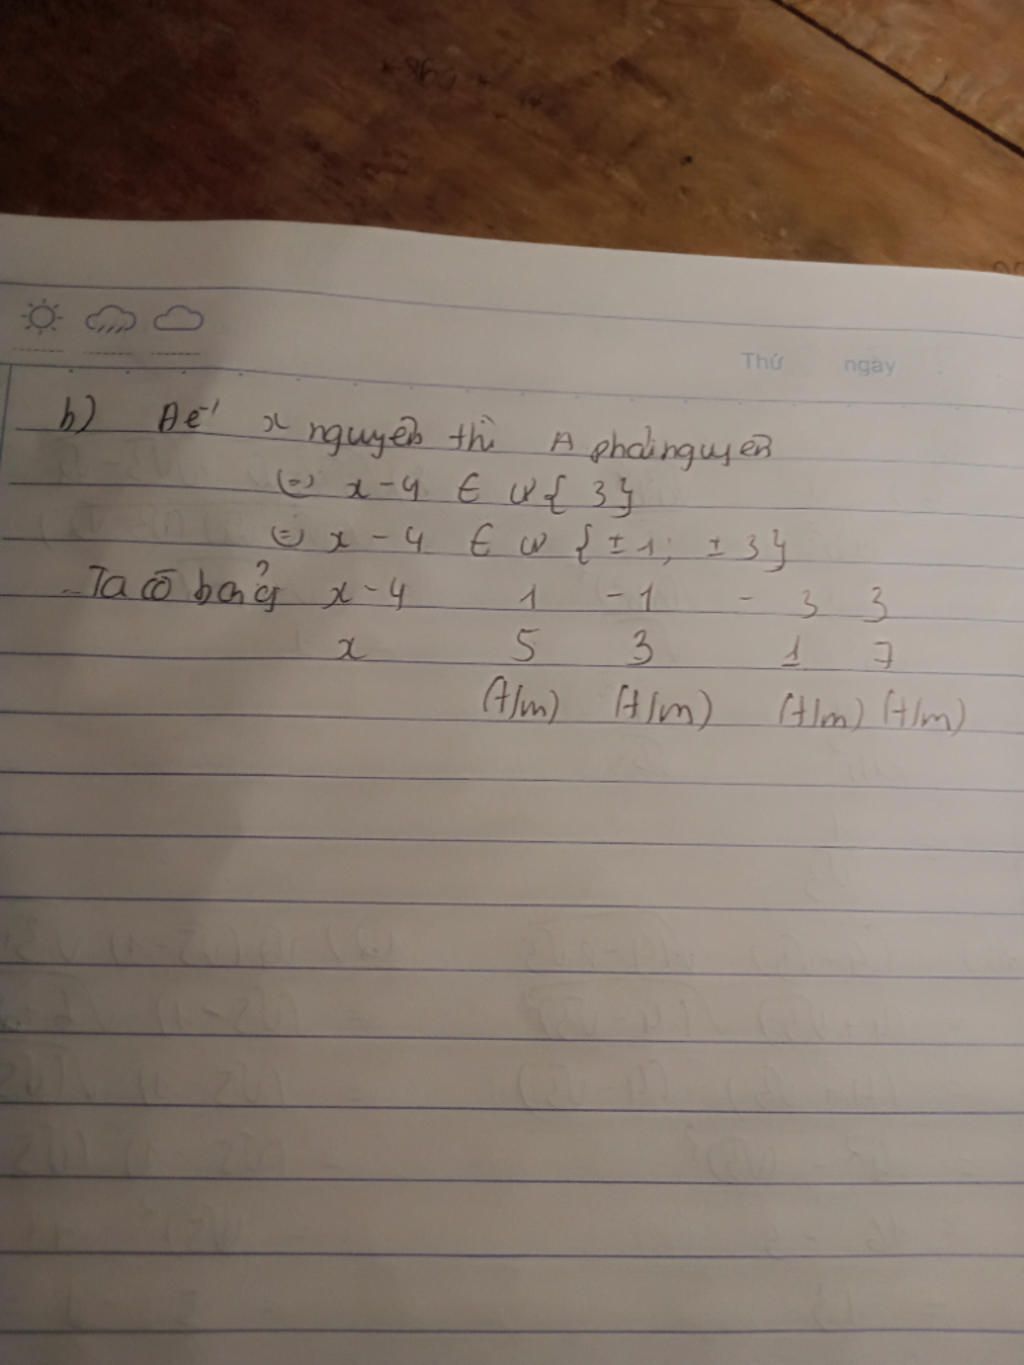 Thứ ngày
b) Để x nguyên thì A phải nguyên
(=) x-4 ∈ Ư{ 3}
(=) x - 4 ∈ Ư {±1; ±3}
Ta có bảng x-4 1 -1 - 3 3
x 5 3 1 7
(t/m) (t/m) (t/m) (t/m)